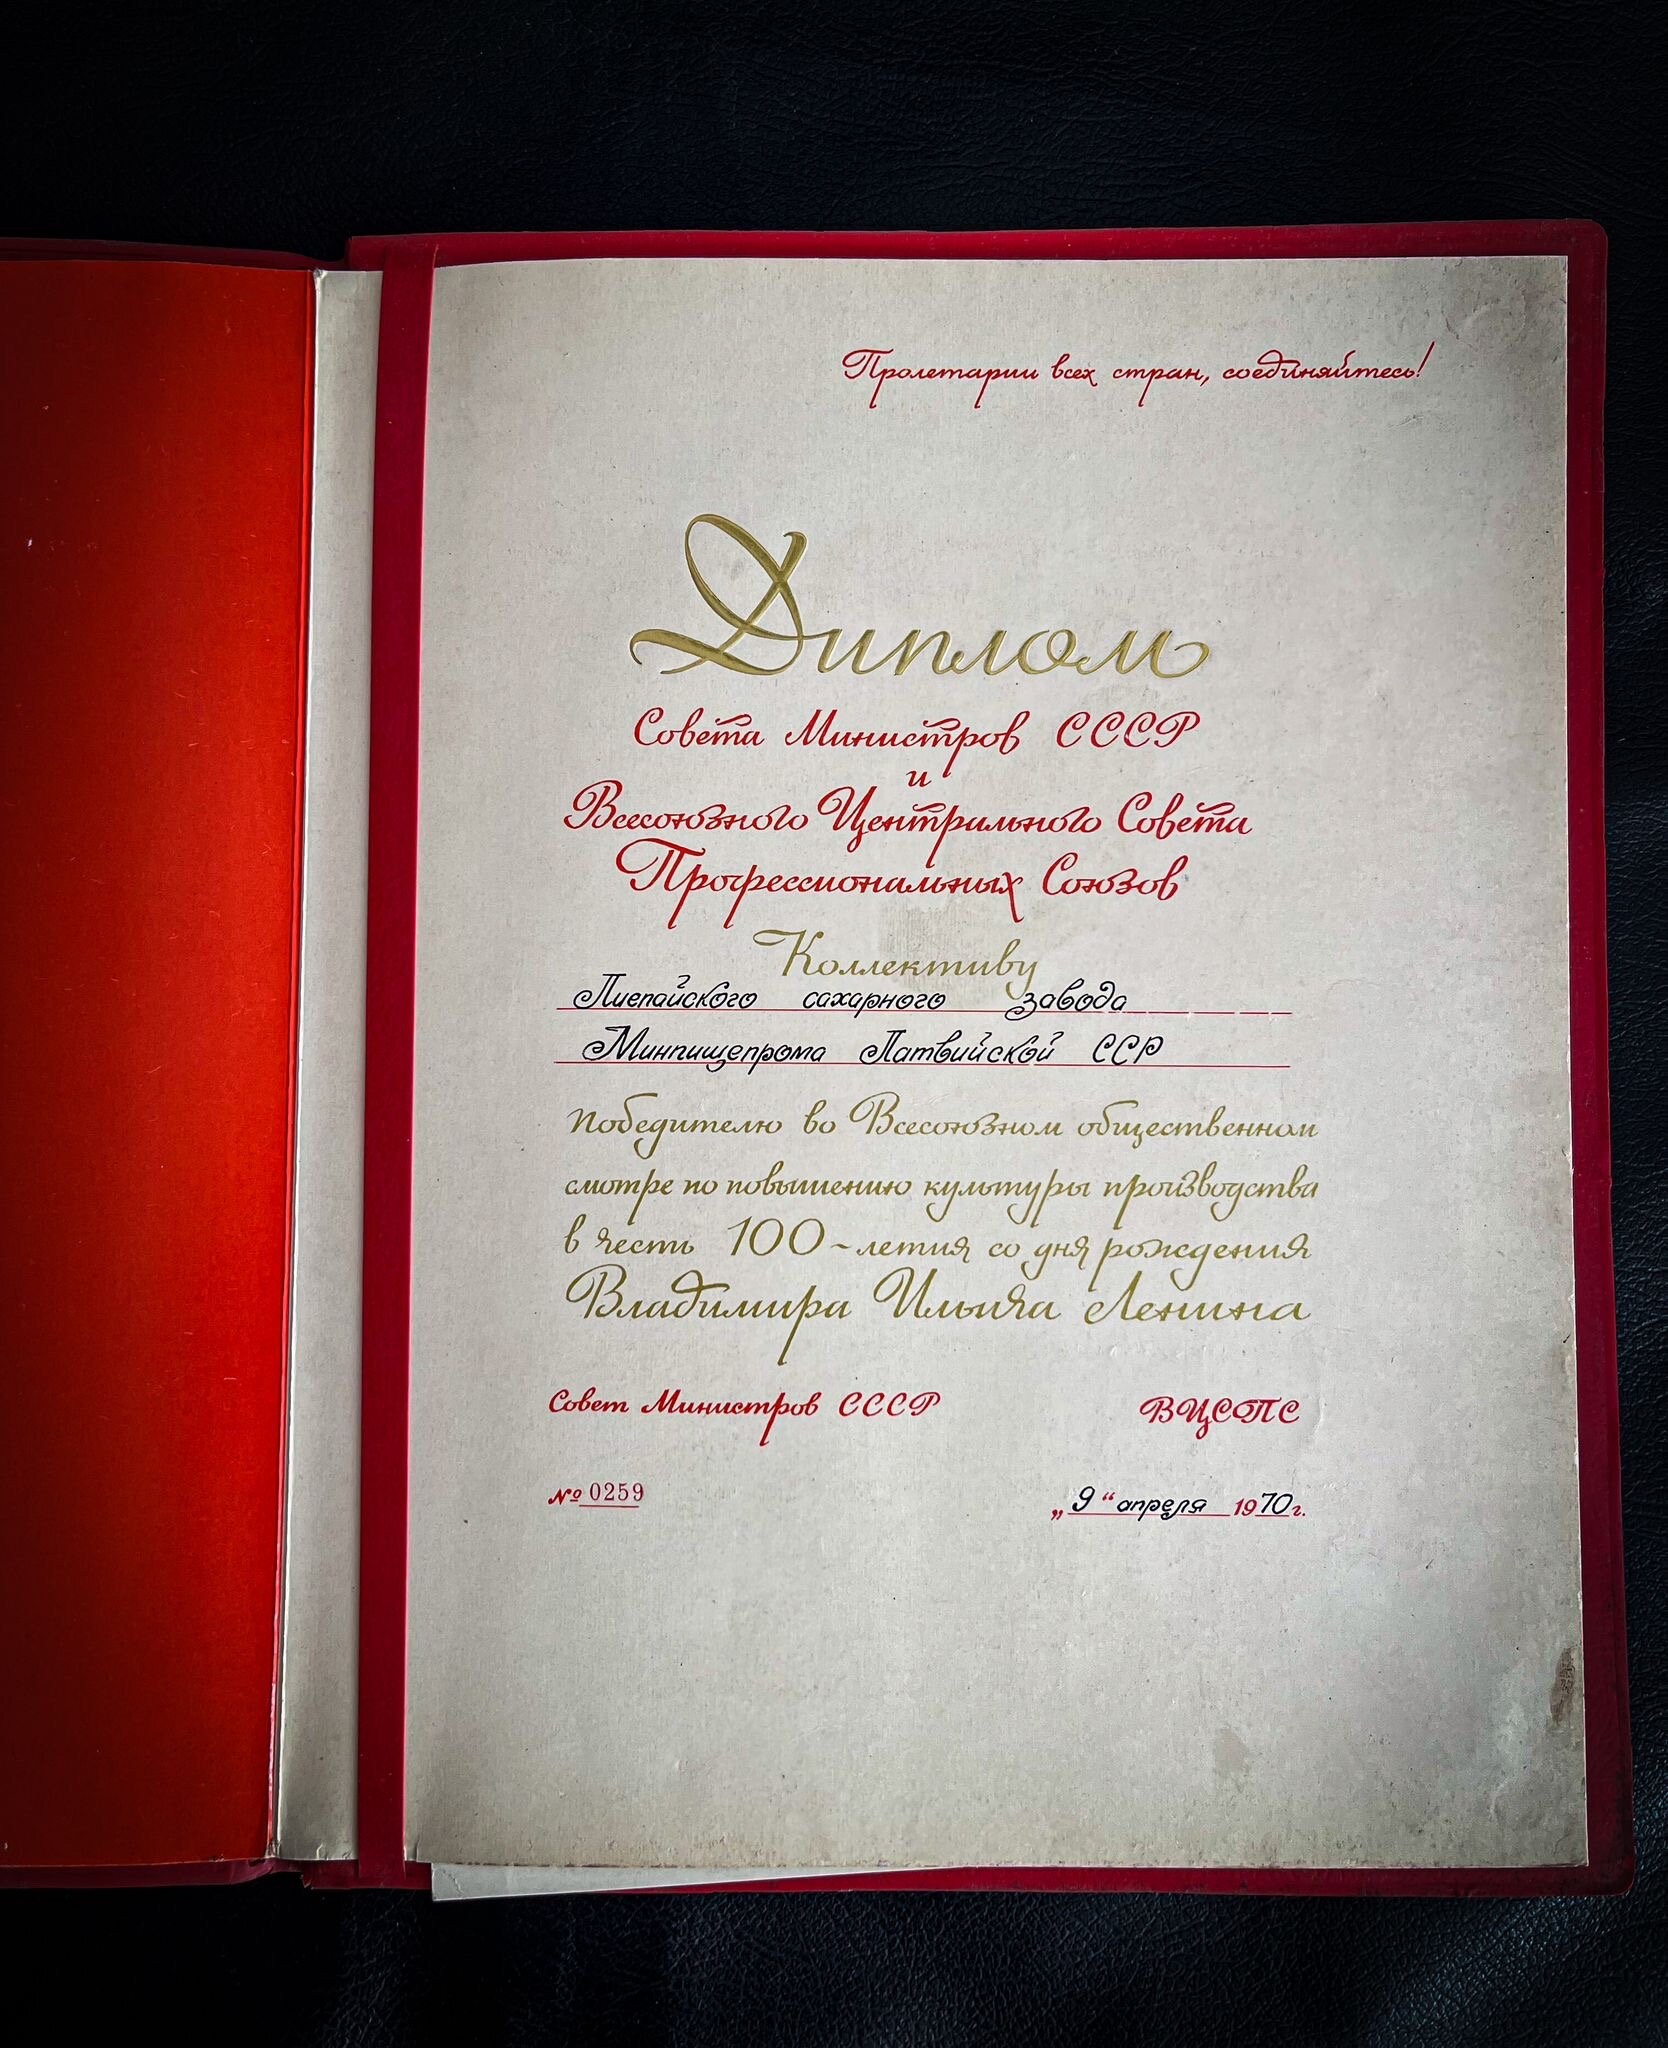 Пролетарии всех стран, соединяйтесь!
Диплом
Совета Министров СССР
и
Всесоюзного Центрального Совета
Профессиональных Союзов
Коллективу
Лиепайского сахарного завода
Минпищепрома Латвийской ССР
победителю во Всесоюзном общественном
смотре по повышению культуры производства
в честь 100-летия со дня рождения
Владимира Ильича Ленина
Совет Министров СССР ВЦСПС
№ 0259 „9“ апреля 1970 г.